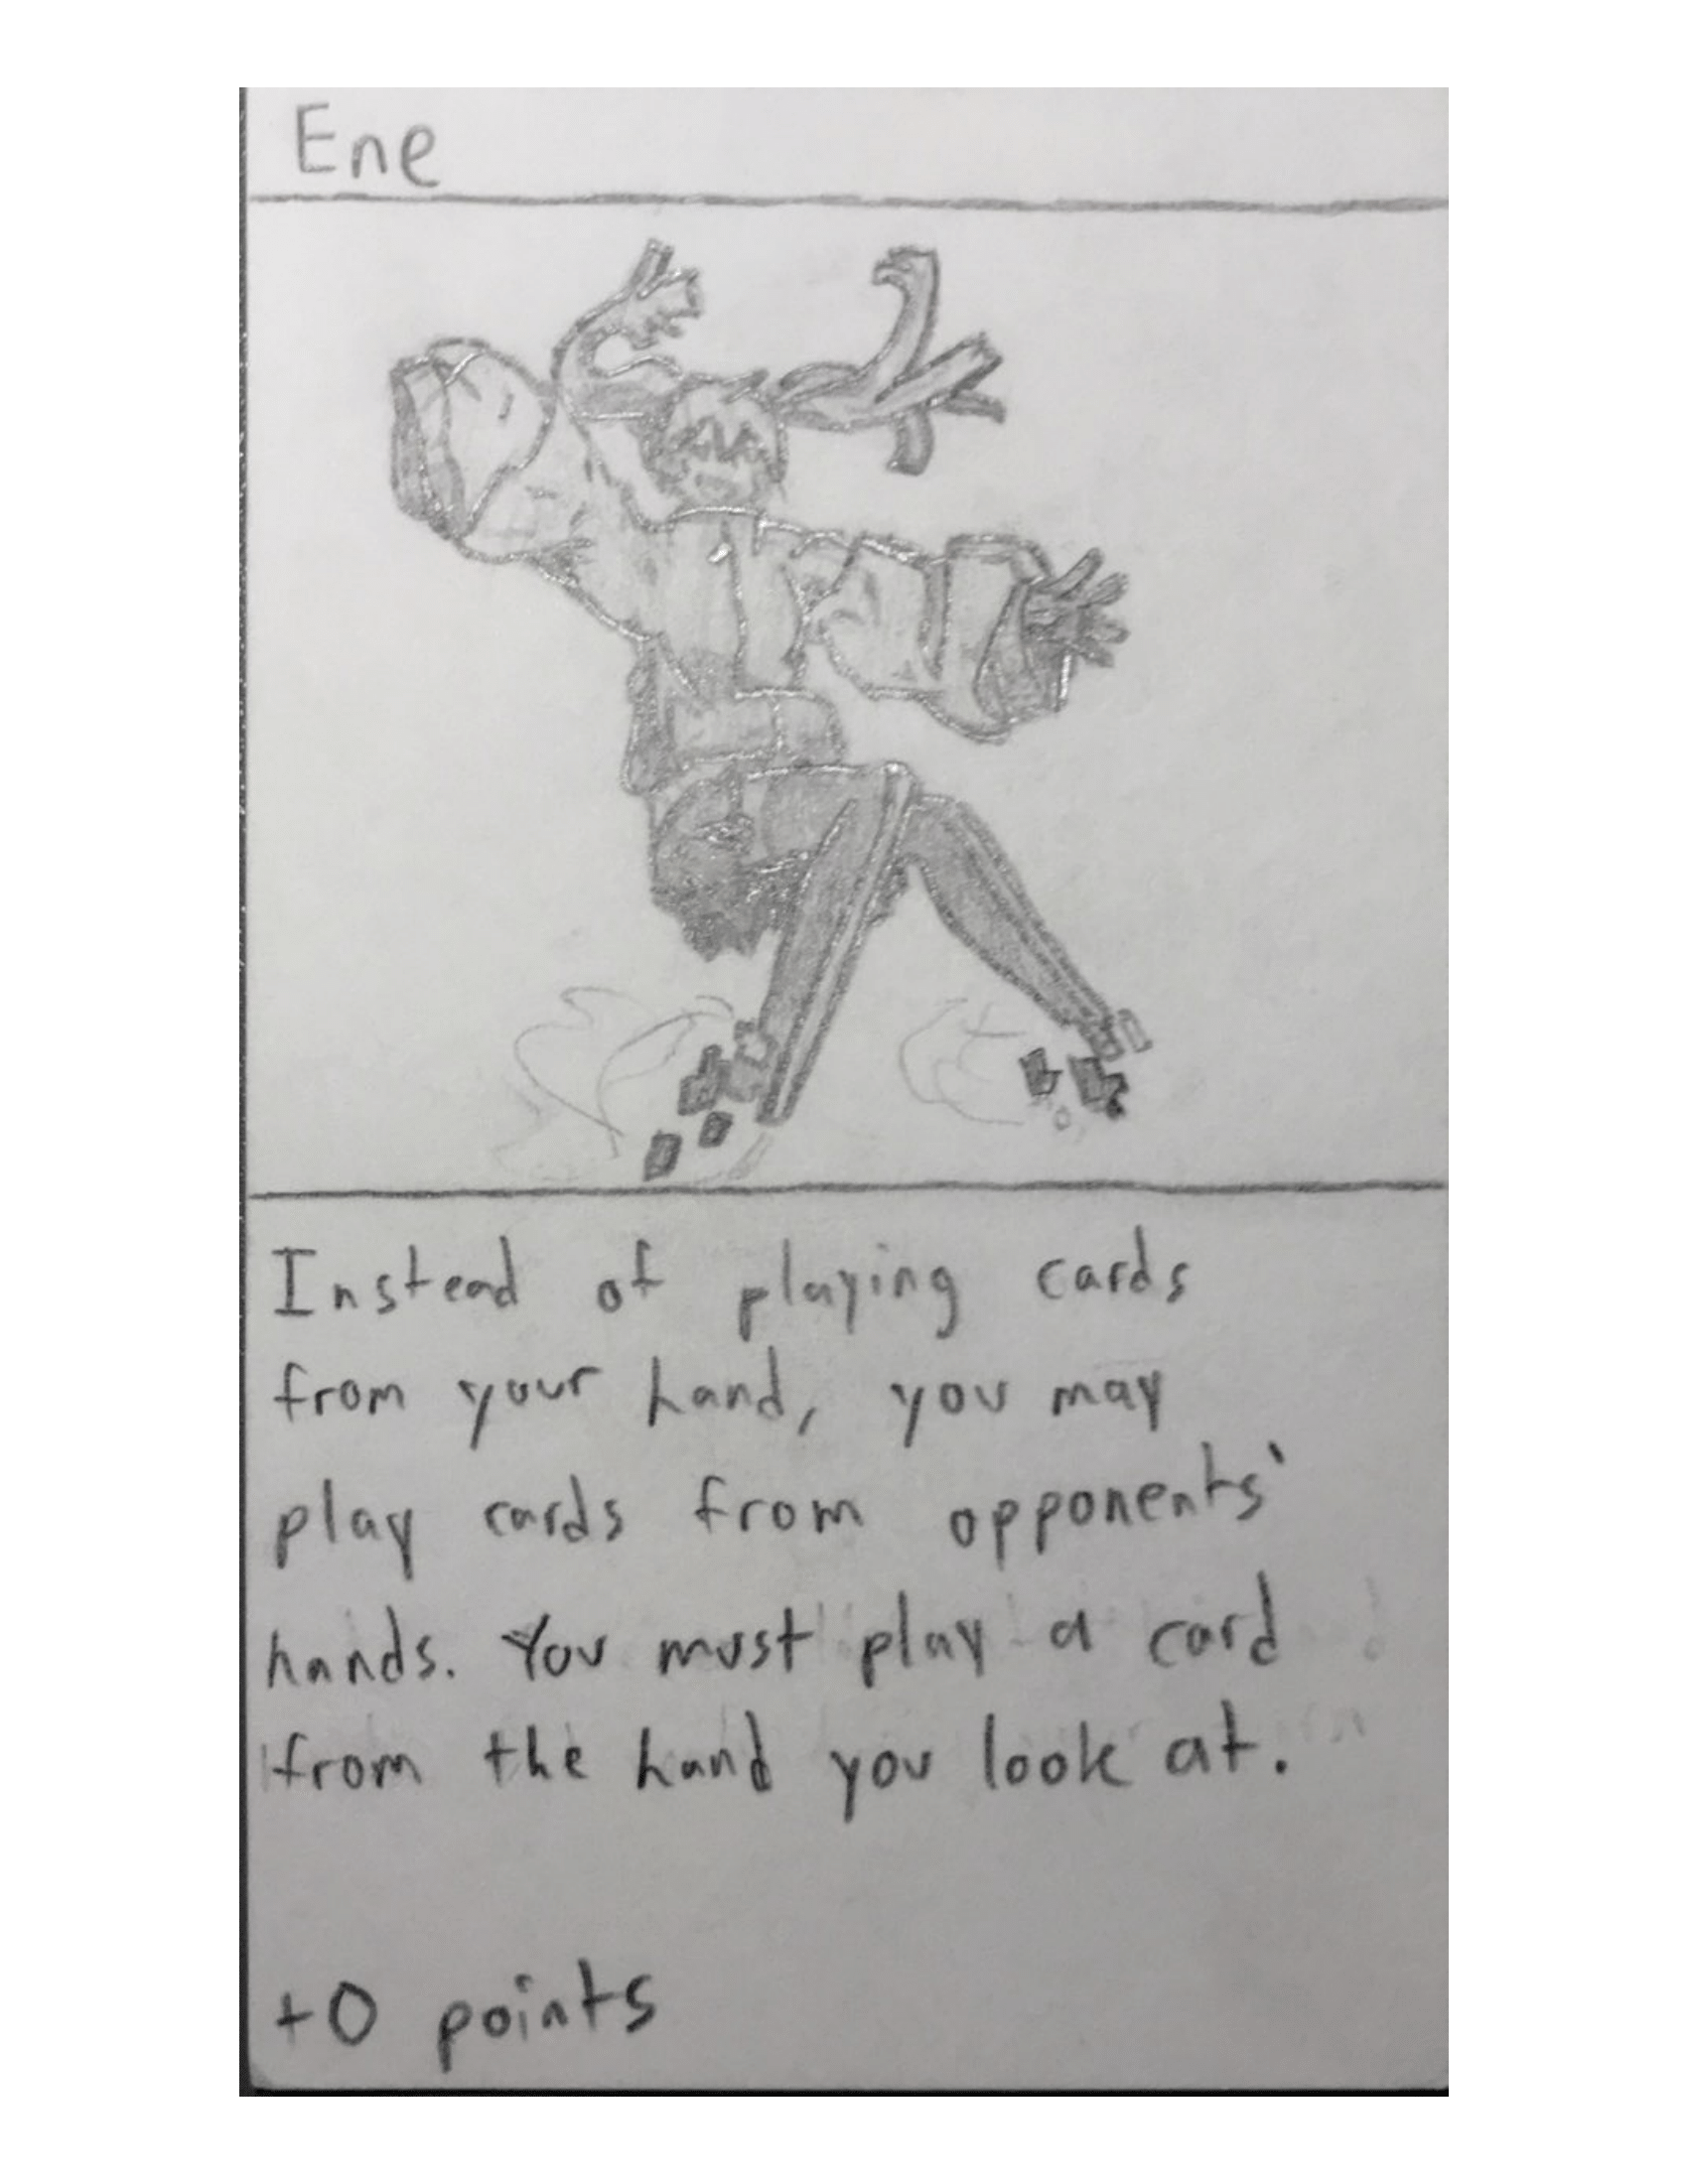 Ene
Instead of playing cards
from your hand, you may
play cards from opponents'
hands. You must play a card
from the hand you look at.
+0 points